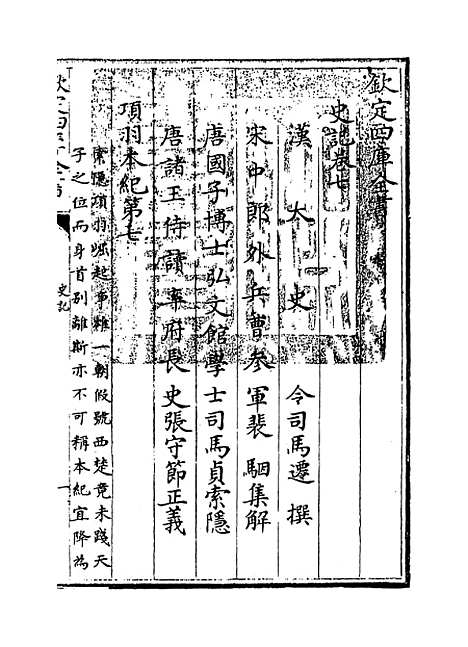 欽定四庫全書
史記卷七
漢太史令司馬遷撰
宋中郎外兵曹參軍裴駰集解
唐國子博士弘文館學士司馬貞索隱
唐諸王侍讀率府長史張守節正義
項羽本紀第七
索隱項羽崛起爭雄一朝假號西楚竟未踐天
子之位而身首別離斯亦不可稱本紀宜降為
欽定四庫全書
史記
一